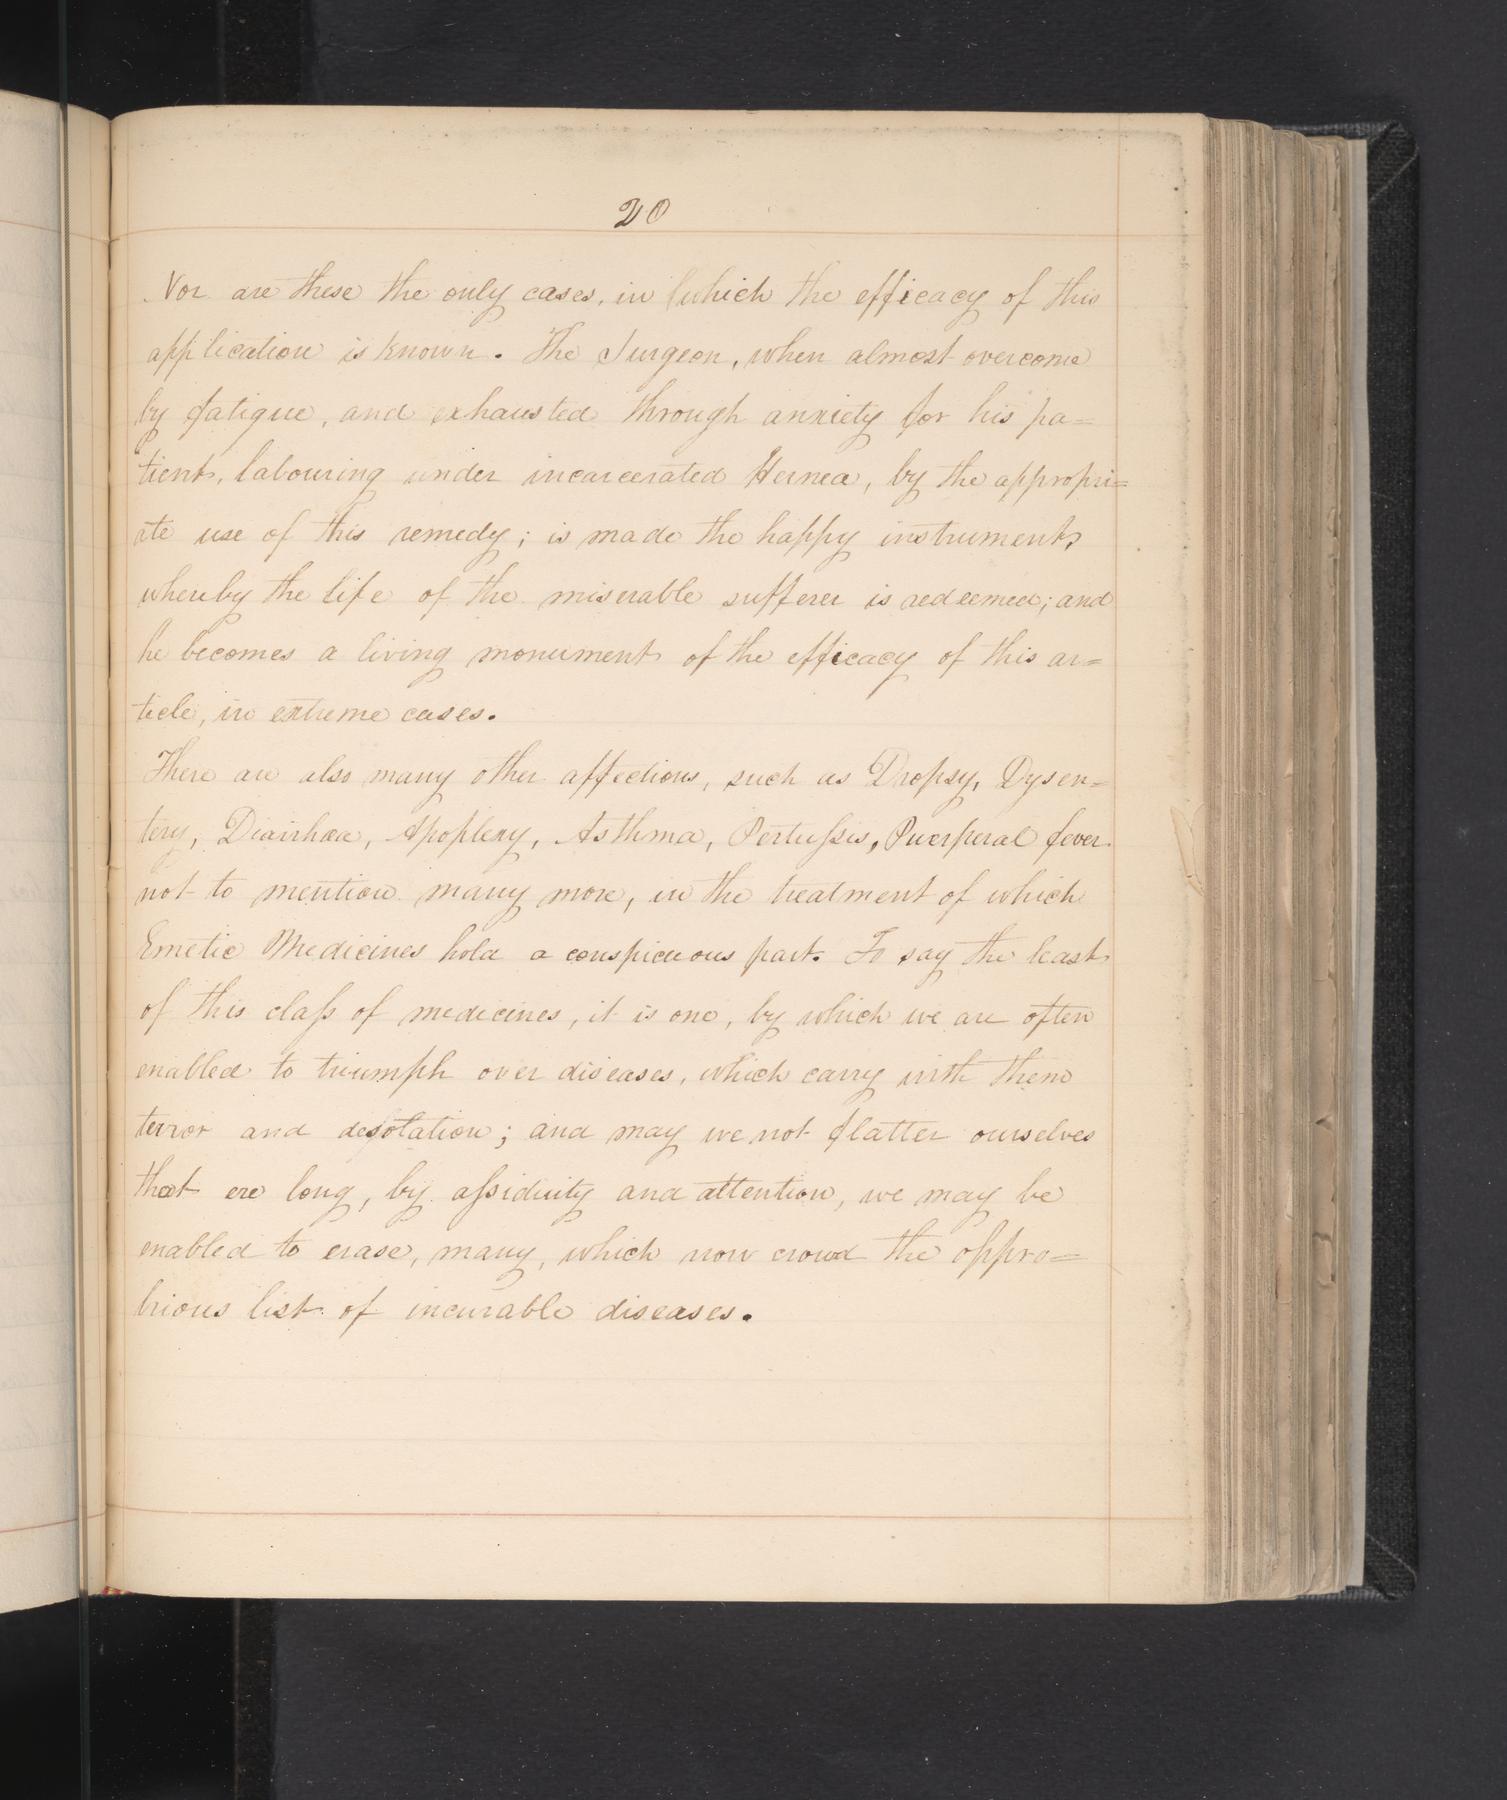 20
Nor are these the only cases, in which the efficacy of this
application is known. The Surgeon, when almost overcome
by fatigue, and exhausted through anxiety for his pa=
tient, labouring under incarcerated Hernea, by the appropri=
ate use of this remedy; is made the happy instrument,
whereby the life of the miserable sufferer is redeemed; and
he becomes a living monument of the efficacy of this ar=
ticle, in extreme cases.
There are also many other affections, such as Dropsy, Dysen=
tery, Diairhœa, Apoplexy, Asthma, Pertuſsis, Puerperal fever
not to mention many more, in the treatment of which
Emetic Medicines hold a conspicuous part. To say the least
of this claſs of medicines, it is one, by which we are often
enabled to triumph over diseases, which carry with them
terror and desolation; and may we not flatter ourselves
that ere long, by aſsiduity and attention, we may be
enabled to erase, many, which now crowd the oppro=
brious list of incurable diseases.